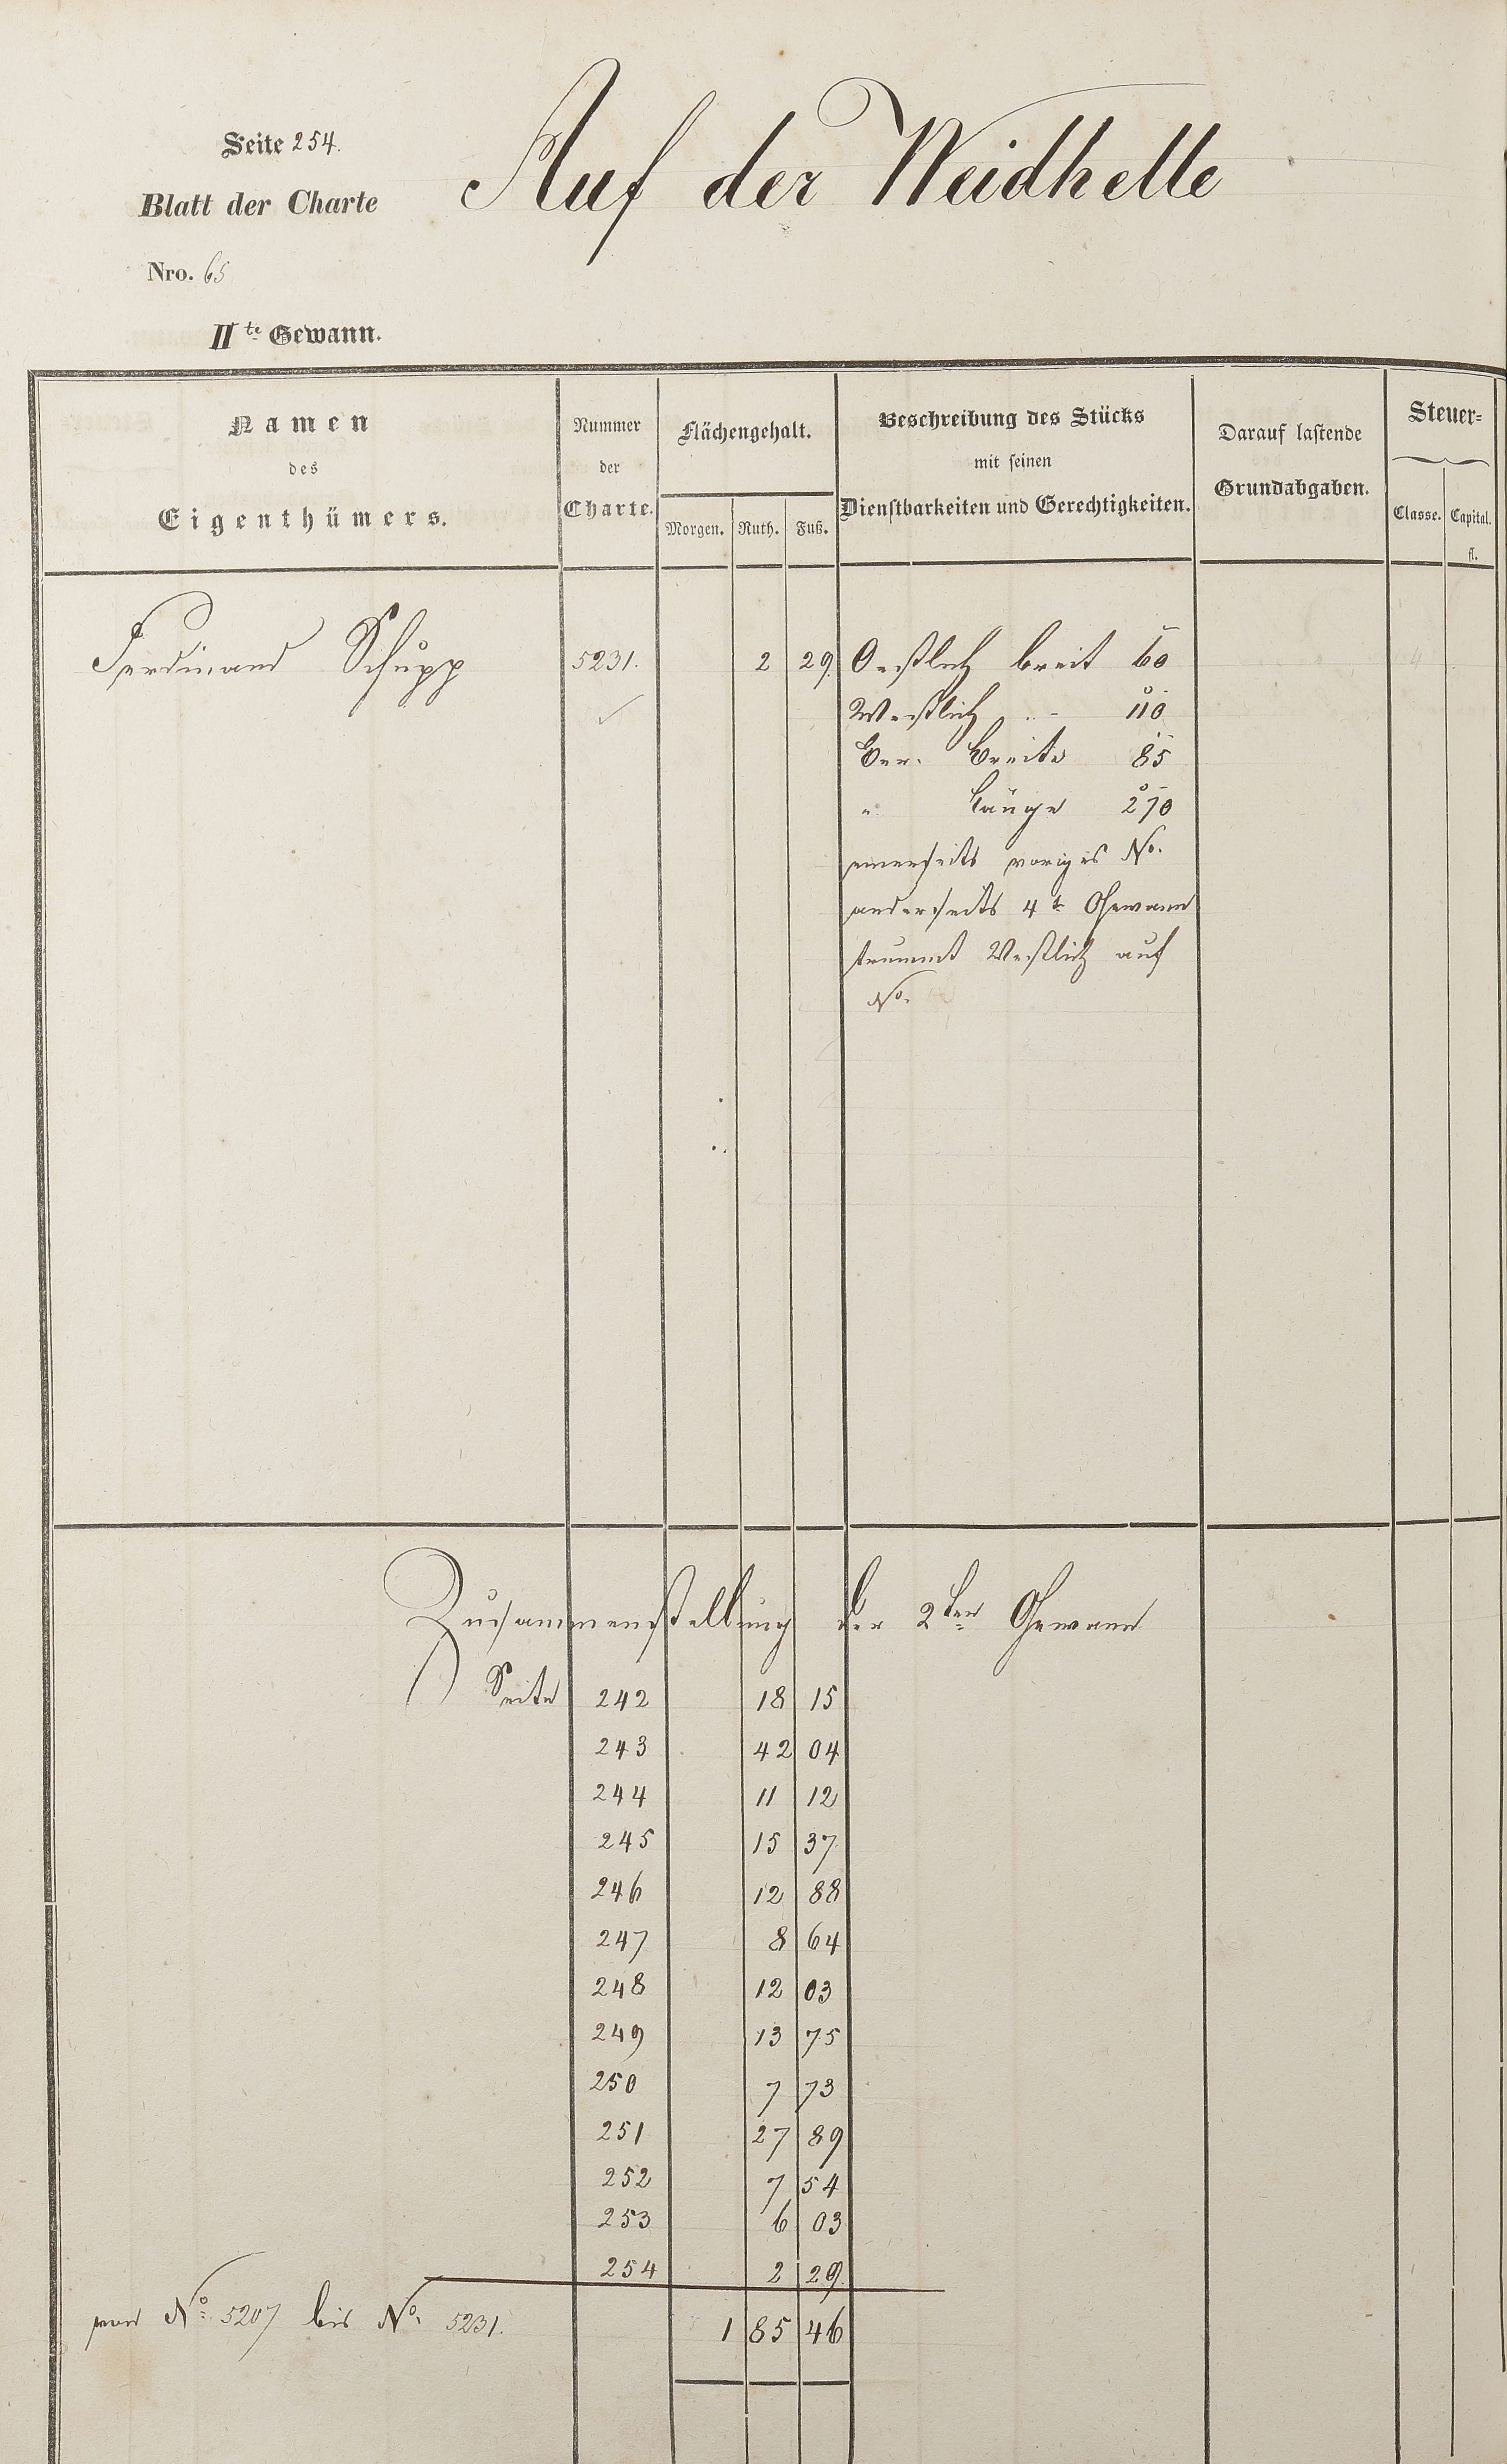 Seite 254.
Auf der Weidhelle
Blatt der Charte
Nro. 65
IIte Gewann.
Namen
des
Eigenthümers.
Nummer
der
Charte.
Flächengehalt.
Morgen. Ruth. Fuß.
Beschreibung des Stücks
mit seinen
Dienstbarkeiten und Gerechtigkeiten.
Darauf lastende
Grundabgaben.
Steuer=
Classe. Capital.
fl.
Ferdinand Schupp 5231. 2 29. Oestlich breit 60 4
Westlich " 110
Ver. Breite 85
" Länge 270
einerseits voriges No.
anderseits 4te Gewann
stummt Westlich auf
No.
Zusammenstellung der 2ten Gewann
Seite 242 18 15
243 42 04
244 11 12
245 15 37
246 12 88
247 8 64
248 12 03
249 13 75
250 7 73
251 27 89
252 7 54
253 6 03
254 2 29.
von No. 5207 bis No. 5231. 1 85 46